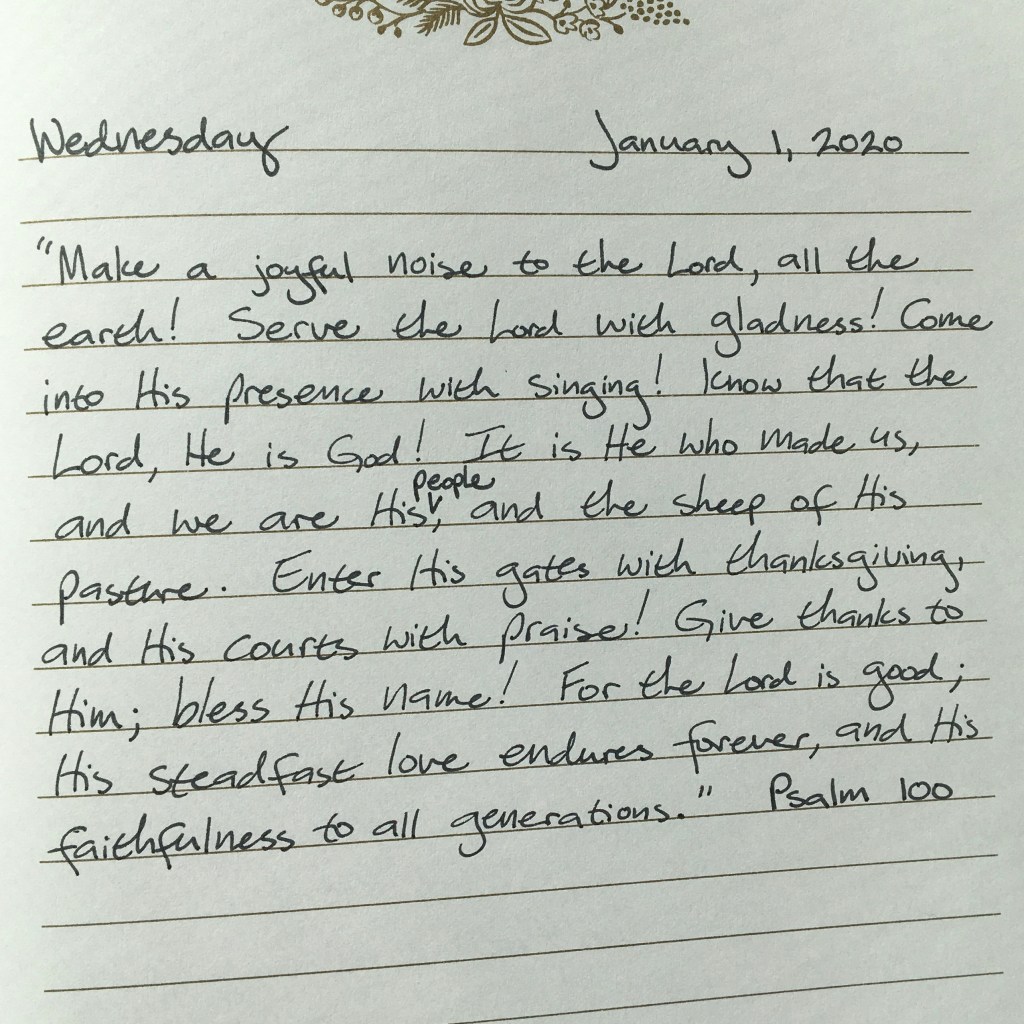 Wednesday January 1, 2020
"Make a joyful noise to the Lord, all the
earth! Serve the Lord with gladness! Come
into His presence with singing! Know that the
Lord, He is God! It is He who made us,
people
and we are His, and the sheep of His
pasture. Enter His gates with thanksgiving,
and His courts with praise! Give thanks to
Him; bless His name! For the Lord is good;
His steadfast love endures forever, and His
faithfulness to all generations." Psalm 100